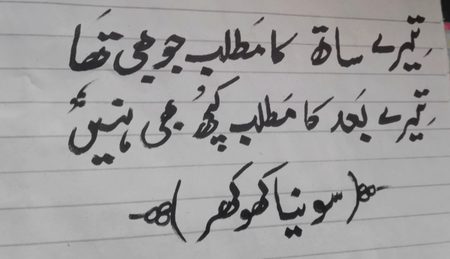 تیرے ساتھ کا مطلب جو بھی تھا
تیرے بعد کا مطلب کچھ بھی نہیں
(سونیا کھوکھر)